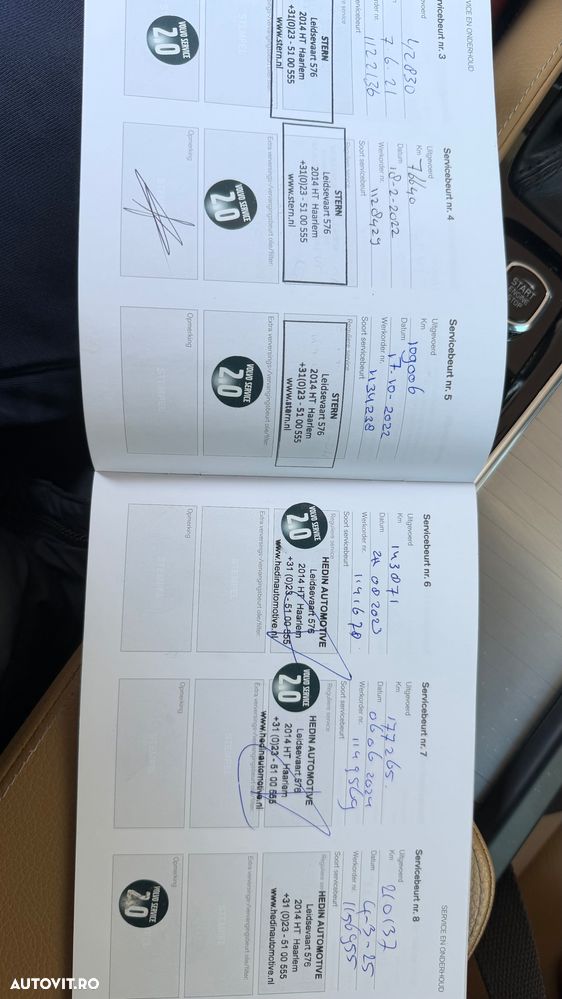 SERVICE EN ONDERHOUD
Servicebeurt nr. 3
Uitgevoerd
Km 42830
7.6.21
Werkorder nr. 1122136
Soort servicebeurt
Reguliere service
STERN
Leidsevaart 576
2014 HT Haarlem
+31(0)23 - 51 00 555
www.stern.nl
VOLVO SERVICE
2.0
Servicebeurt nr. 4
Uitgevoerd
Km 76640
Datum 18-2-2022
Werkorder nr. 1128429
Soort servicebeurt
STERN
Leidsevaart 576
2014 HT Haarlem
+31(0)23 - 51 00 555
www.stern.nl
Extra verversings-/vervangingsbeurt olie/filter:
VOLVO SERVICE
2.0
Opmerking
Servicebeurt nr. 5
Uitgevoerd
Km 109006
Datum 17-10-2022
Werkorder nr. 1134238
Soort servicebeurt
Reguliere service
STERN
Leidsevaart 576
2014 HT Haarlem
+31(0)23 - 51 00 555
www.stern.nl
Extra verversings-/vervangingsbeurt olie/filter:
VOLVO SERVICE
2.0
Opmerking
START
ENGINE
STOP
Servicebeurt nr. 6
Uitgevoerd
Km 143871
Datum 24 08 2023
Werkorder nr. 1141678
Soort servicebeurt
Reguliere service
HEDIN AUTOMOTIVE
Leidsevaart 576
2014 HT Haarlem
+31 (0)23 - 51 00 555
www.hedinautomotive.nl
VOLVO SERVICE
2.0
Extra verversings-/vervangingsbeurt olie/filter:
Opmerking
Servicebeurt nr. 7
Uitgevoerd
Km 177265.
Datum 06 06 2024
Werkorder nr. 1149569
Soort servicebeurt
Reguliere service
HEDIN AUTOMOTIVE
Leidsevaart 576
2014 HT Haarlem
+31 (0)23 - 51 00 555
www.hedinautomotive.nl
VOLVO SERVICE
2.0
Opmerking
SERVICE EN ONDERHOUD
Servicebeurt nr. 8
Uitgevoerd
Km 210137
Datum 4-3-25
Werkorder nr. 1156955
Soort servicebeurt
HEDIN AUTOMOTIVE
Leidsevaart 576
2014 HT Haarlem
+31 (0)23 - 51 00 555
www.hedinautomotive.nl
Extra verversings-/vervangingsbeurt olie/filter:
Opmerking
VOLVO SERVICE
2.0
AUTOVIT.RO